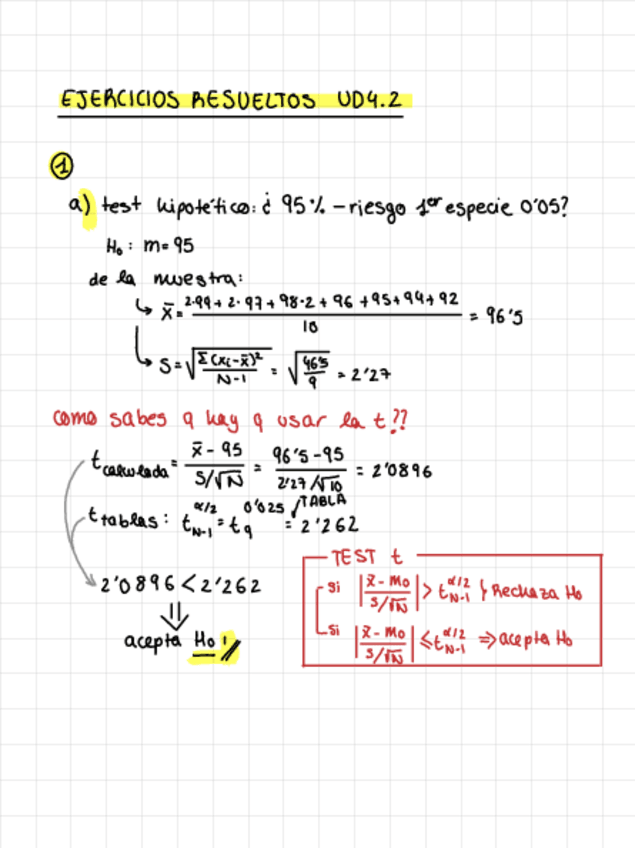 EJERCICIOS RESUELTOS UD4.2
1
a) test hipotético: ¿ 95% - riesgo 1er especie 0'05?
H₀ : m = 95
de la muestra:
↳ x̄ = (2·99 + 2·97 + 98·2 + 96 + 95 + 94 + 92) / 10 = 96'5
↳ S = √(Σ(xᵢ-x̄)² / N-1) = √(46'5 / 9) = 2'27
como sabes q hay q usar la t??
t calculada = (x̄ - 95) / (S/√N) = (96'5 - 95) / (2'27/√10) = 2'0896
t tablas: t_{N-1}^{α/2} = t_9^{0'025} = 2'262
TABLA
2'0896 < 2'262
⇓
acepta H₀
TEST t
si |(x̄ - M₀) / (S/√N)| > t_{N-1}^{α/2} } Rechaza H₀
si |(x̄ - M₀) / (S/√N)| ≤ t_{N-1}^{α/2} ⇒ acepta H₀